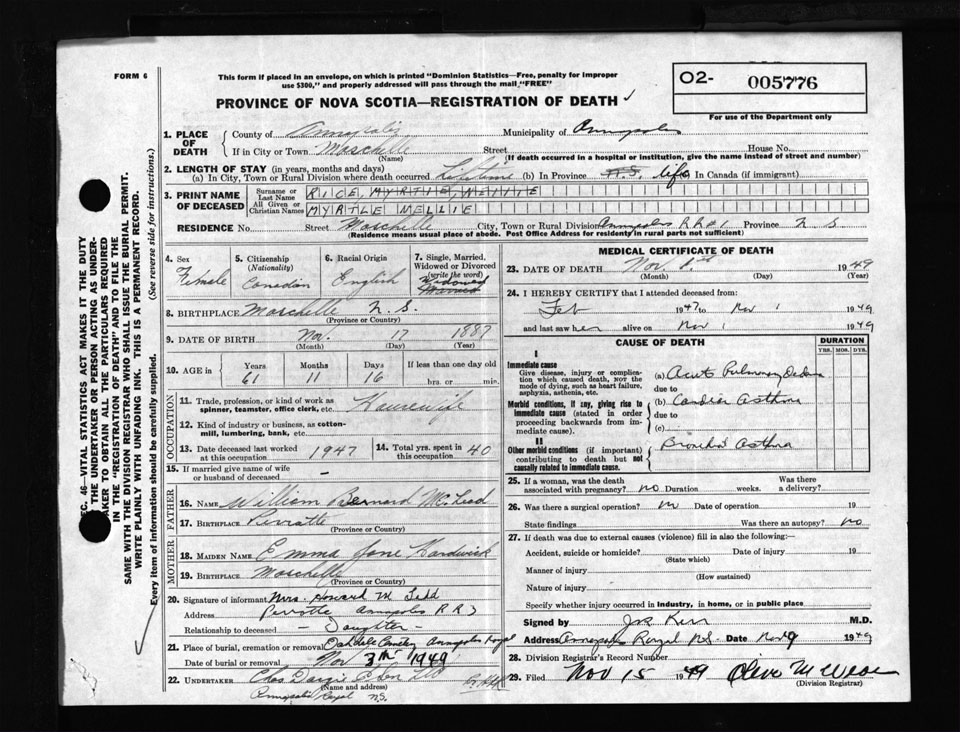 FORM 6
This form if placed in an envelope, on which is printed "Dominion Statistics—Free, penalty for improper
use $300," and properly addressed will pass through the mail "FREE"
PROVINCE OF NOVA SCOTIA—REGISTRATION OF DEATH ✓
O2- 005776
For use of the Department only
1. PLACE OF DEATH
County of Annapolis Municipality of Annapolis
If in City or Town Moschelle Street House No.
(Name) (If death occurred in a hospital or institution, give the name instead of street and number)
2. LENGTH OF STAY (in years, months and days)
(a) In City, Town or Rural Division where death occurred Lifetime (b) In Province N.S. life In Canada (if immigrant)
3. PRINT NAME OF DECEASED
Surname or Last Name RICE, MYRTLE, NELLIE
All Given or Christian Names MYRTLE MELLIE
RESIDENCE No. Street Moschelle City, Town or Rural Division Annapolis RR#1 Province N S
(Residence means usual place of abode. Post Office Address for residents in rural parts not sufficient)
4. Sex Female
5. Citizenship (Nationality) Canadian
6. Racial Origin English
7. Single, Married, Widowed or Divorced (write the word) Widowed Married
8. BIRTHPLACE Moschelle N.S.
(Province or Country)
9. DATE OF BIRTH Nov. 17 1887
(Month) (Day) (Year)
10. AGE in Years 61 Months 11 Days 16 If less than one day old hrs. or min.
OCCUPATION
11. Trade, profession, or kind of work as spinner, teamster, office clerk, etc. Housewife
12. Kind of industry or business, as cotton-mill, lumbering, bank, etc.
13. Date deceased last worked at this occupation 1947
14. Total yrs. spent in this occupation 40
15. If married give name of wife or husband —
FATHER
16. NAME William Bernard McLead
17. BIRTHPLACE Perrotte
(Province or Country)
MOTHER
18. MAIDEN NAME Emma Jane Hardwick
19. BIRTHPLACE Moschelle
(Province or Country)
20. Signature of informant Mrs. Howard M Ladd
Address Perrotte Annapolis R R 3
Relationship to deceased — Daughter —
21. Place of burial, cremation or removal Annapolis Royal
Date of burial or removal Nov 3rd 1949
22. UNDERTAKER Chas. Dargie & Son Ltd
(Name and address)
Annapolis Royal N.S.
MEDICAL CERTIFICATE OF DEATH
23. DATE OF DEATH Nov. 1st 1949
(Month) (Day) (Year)
24. I HEREBY CERTIFY that I attended deceased from:
Feb 1947 to Nov 1 1949
and last saw her alive on Nov 1 1949
CAUSE OF DEATH
DURATION
YRS. MOS. DYS.
I
Immediate cause
Give disease, injury or complication which caused death, not the mode of dying, such as heart failure, asphyxia, asthenia, etc.
(a) Acute Pulmonary Oedema
due to
Morbid conditions, if any, giving rise to immediate cause (stated in order proceeding backwards from immediate cause).
(b) Cardiac Asthma
due to
(c)
II
Other morbid conditions (if important) contributing to death but not causally related to immediate cause.
Bronchial Asthma
25. If a woman, was the death associated with pregnancy? no Duration weeks. Was there a delivery?
26. Was there a surgical operation? no Date of operation 19
State findings Was there an autopsy? no
27. If death was due to external causes (violence) fill in also the following:—
Accident, suicide or homicide? Date of injury 19
(State which)
Manner of injury
(How sustained)
Nature of injury
Specify whether injury occurred in industry, in home, or in public place
Signed by Kerr M.D.
Address Annapolis Royal N.S. Date Nov 9 1949
28. Division Registrar's Record Number
29. Filed Nov 15 1949
(Division Registrar)
SEC. 46—VITAL STATISTICS ACT MAKES IT THE DUTY
OF THE UNDERTAKER OR PERSON ACTING AS UNDER-
TAKER TO OBTAIN ALL THE PARTICULARS REQUIRED
IN THE "REGISTRATION OF DEATH" AND TO FILE THE
SAME WITH THE DIVISION REGISTRAR WHO SHALL ISSUE THE BURIAL PERMIT.
WRITE PLAINLY WITH UNFADING INK. THIS IS A PERMANENT RECORD.
Every item of information should be carefully supplied. (See reverse side for instructions.)